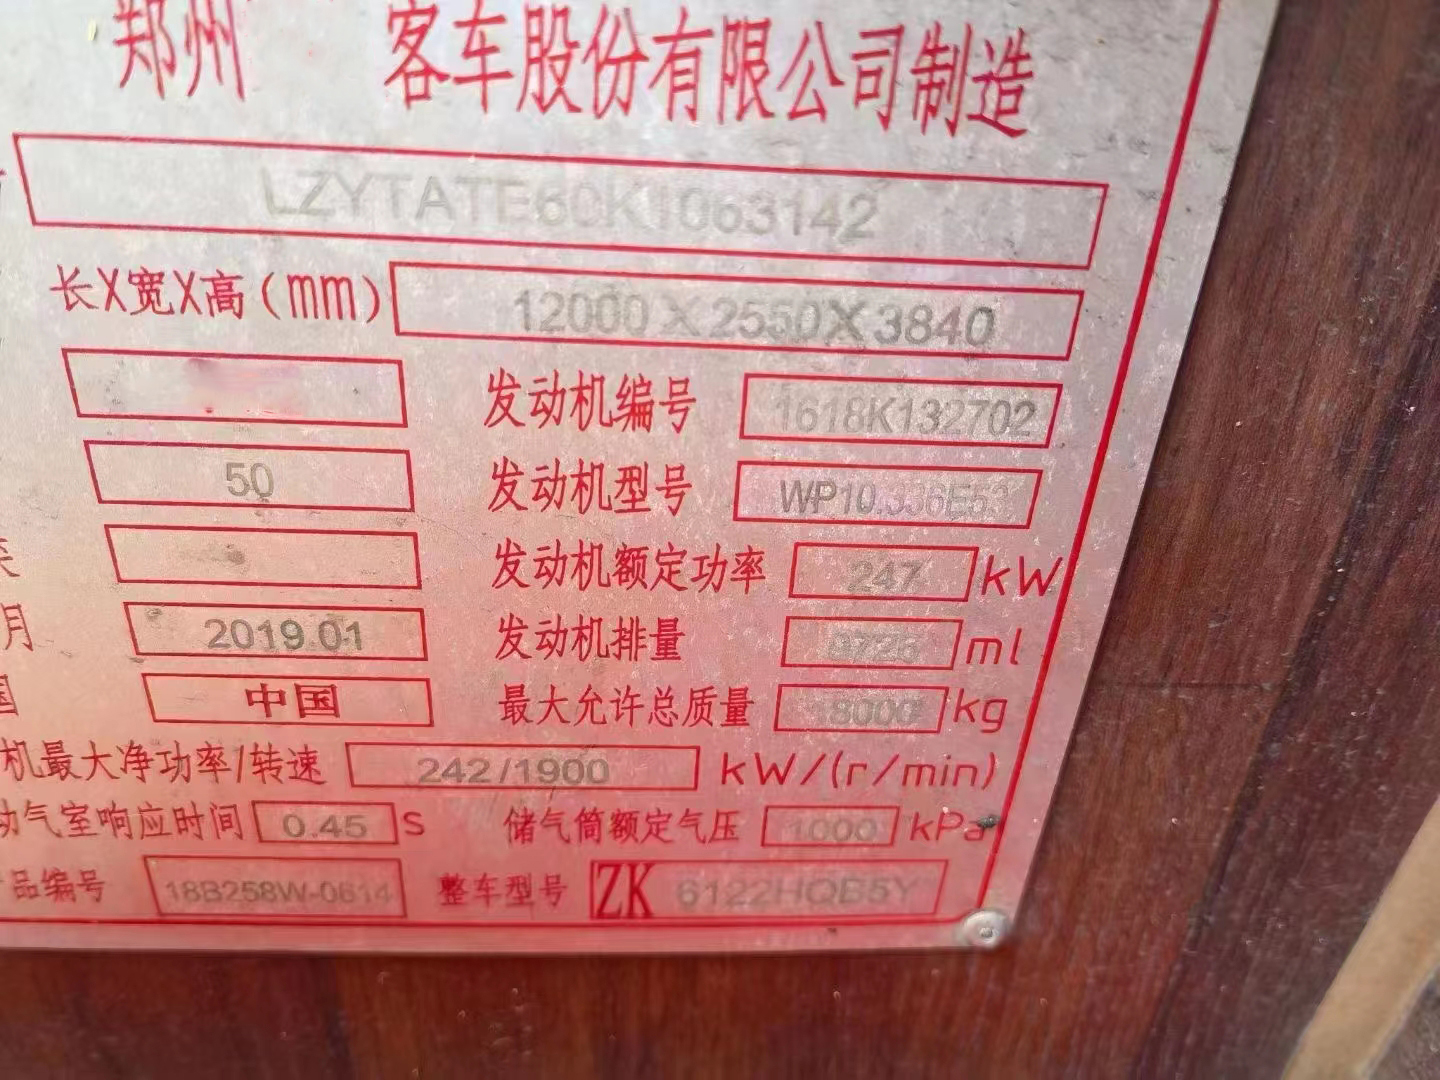 郑州 客车股份有限公司制造
LZYTATE60K1063142
长X宽X高(mm) 12000X2550X3840
发动机编号 1618K132702
50 发动机型号 WP10.336E53
发动机额定功率 247 kW
月 2019.01 发动机排量 9726 ml
国 中国 最大允许总质量 18000 kg
机最大净功率/转速 242/1900 kW/(r/min)
动气室响应时间 0.45 S 储气筒额定气压 1000 kPa
产品编号 18B258W-0614 整车型号 ZK 6122HQB5Y